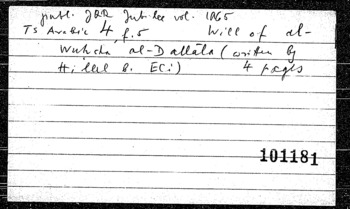 publ. JQR Jubilee vol. 1965
TS Arabic 4, f.5 Will of al-
Wuhsha al-Dallāla (written by
Hillel b. Eli) 4 pages
101181